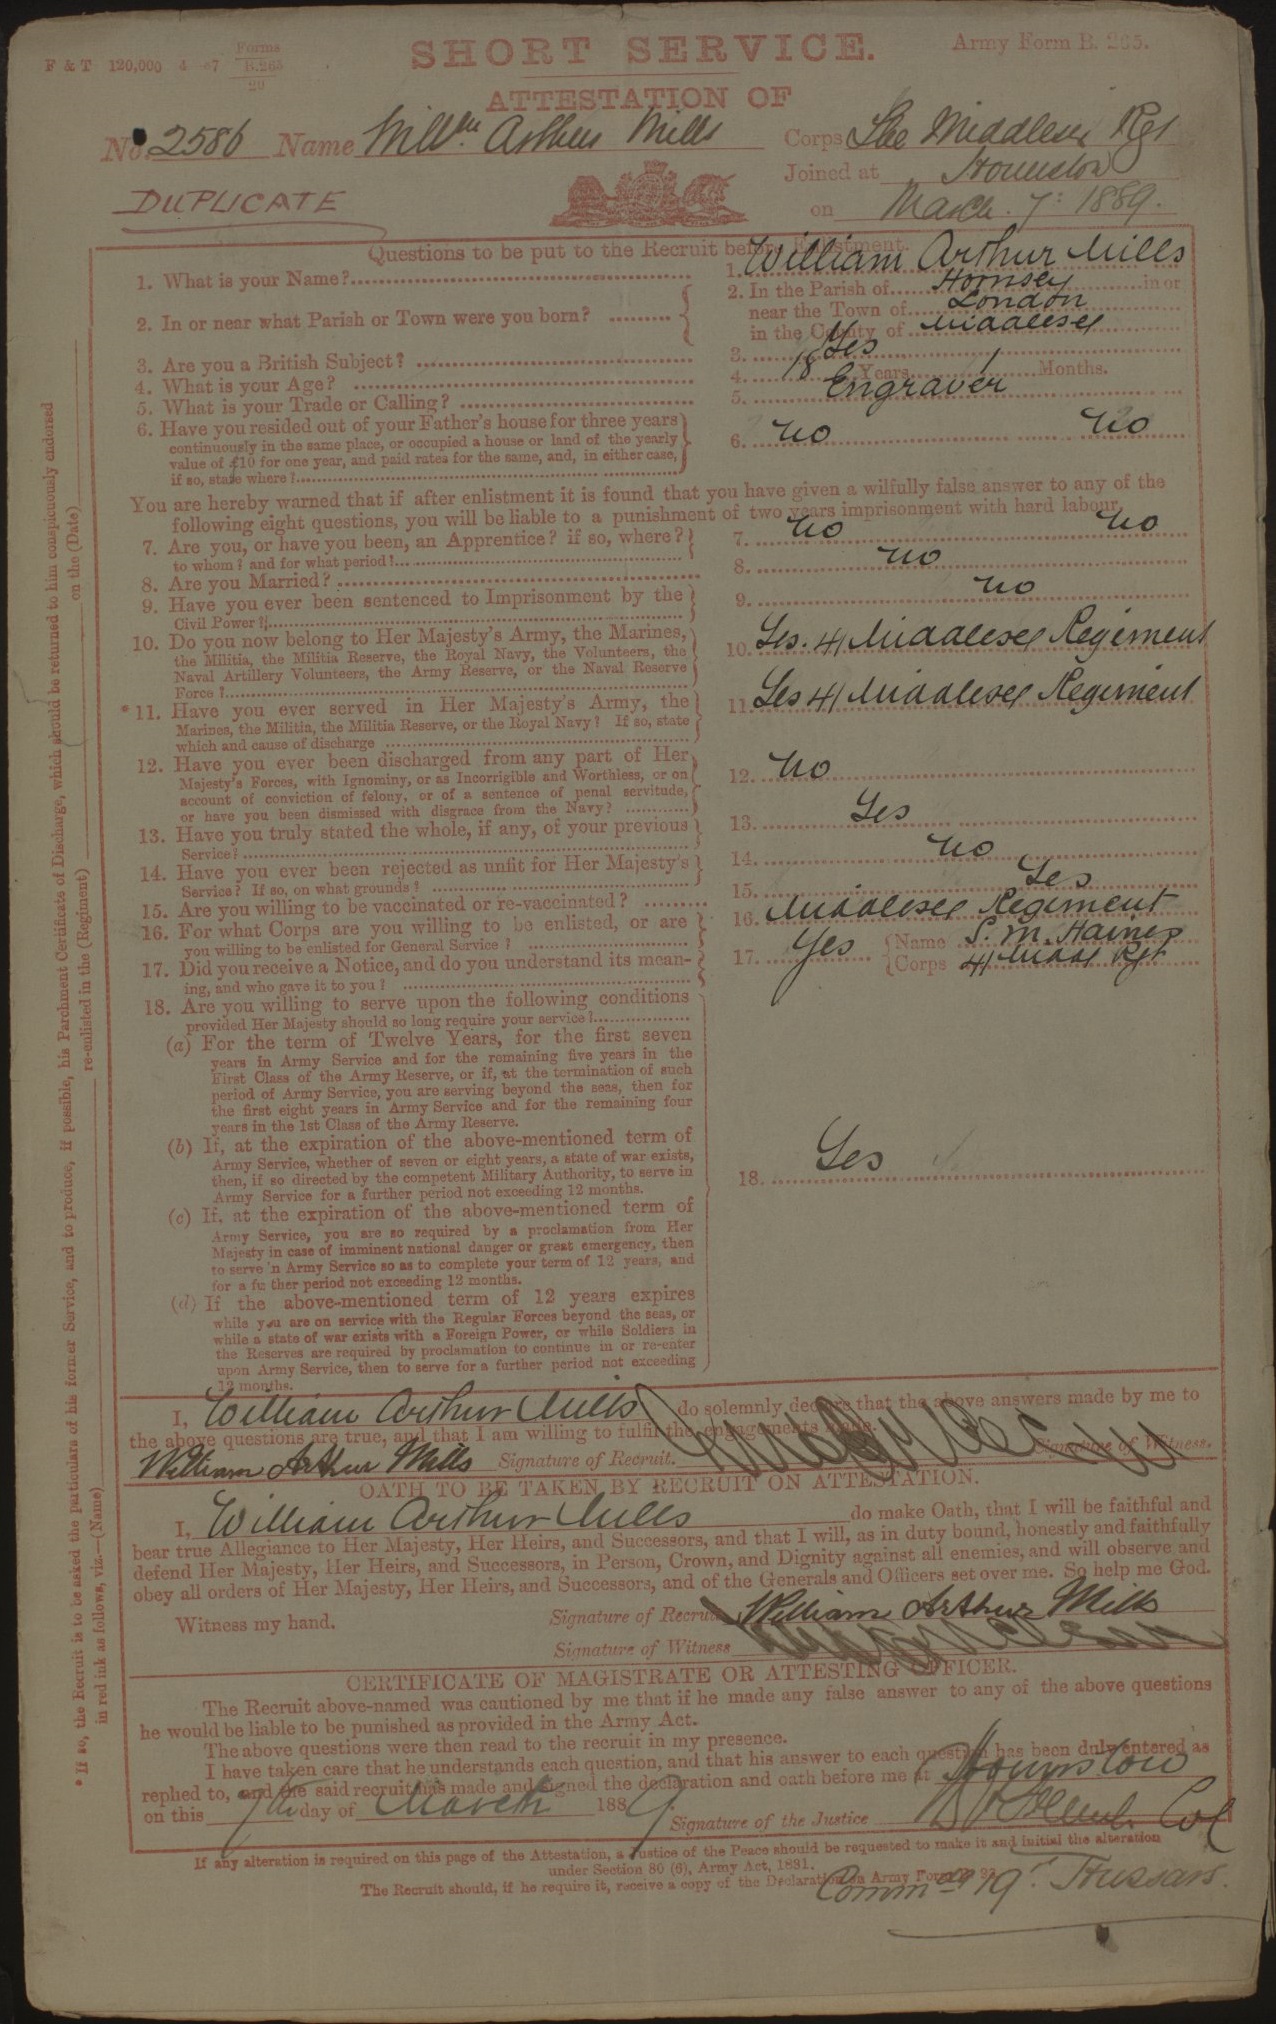 F & T 120,000 4-87 Forms B.265 20
SHORT SERVICE.
Army Form B. 265.
ATTESTATION OF
No. 2586 Name Willm. Arthur Mills Corps The Middlesex Rgt
Joined at Hounslow
on March 7: 1889.
DUPLICATE
Questions to be put to the Recruit before Enlistment.
1. What is your Name? 1. William Arthur Mills
2. In or near what Parish or Town were you born? 2. In the Parish of Hornsey in or
near the Town of London
in the County of Middlesex
3. Are you a British Subject? 3. Yes
4. What is your Age? 4. 18 Years 1 Months.
5. What is your Trade or Calling? 5. Engraver
6. Have you resided out of your Father's house for three years
continuously in the same place, or occupied a house or land of the yearly
value of £10 for one year, and paid rates for the same, and, in either case,
if so, state where? 6. No No
You are hereby warned that if after enlistment it is found that you have given a wilfully false answer to any of the
following eight questions, you will be liable to a punishment of two years imprisonment with hard labour.
7. Are you, or have you been, an Apprentice? if so, where?
to whom? and for what period? 7. No No
8. Are you Married? 8. No
9. Have you ever been sentenced to Imprisonment by the
Civil Power? 9. No
10. Do you now belong to Her Majesty's Army, the Marines,
the Militia, the Militia Reserve, the Royal Navy, the Volunteers, the
Naval Artillery Volunteers, the Army Reserve, or the Naval Reserve
Force? 10. Yes. 4/ Middlesex Regiment
* 11. Have you ever served in Her Majesty's Army, the
Marines, the Militia, the Militia Reserve, or the Royal Navy? If so, state
which and cause of discharge 11. Yes 4/ Middlesex Regiment
12. Have you ever been discharged from any part of Her
Majesty's Forces, with Ignominy, or as Incorrigible and Worthless, or on
account of conviction of felony, or of a sentence of penal servitude,
or have you been dismissed with disgrace from the Navy? 12. No
13. Have you truly stated the whole, if any, of your previous
Service? 13. Yes
14. Have you ever been rejected as unfit for Her Majesty's
Service? If so, on what grounds? 14. No
15. Are you willing to be vaccinated or re-vaccinated? 15. Yes
16. For what Corps are you willing to be enlisted, or are
you willing to be enlisted for General Service? 16. Middlesex Regiment
17. Did you receive a Notice, and do you understand its mean-
ing, and who gave it to you? 17. Yes Name S. M. Haines
Corps 4/ Middx Rgt
18. Are you willing to serve upon the following conditions
provided Her Majesty should so long require your service?
(a) For the term of Twelve Years, for the first seven
years in Army Service and for the remaining five years in the
First Class of the Army Reserve, or if, at the termination of such
period of Army Service, you are serving beyond the seas, then for
the first eight years in Army Service and for the remaining four
years in the 1st Class of the Army Reserve.
(b) If, at the expiration of the above-mentioned term of
Army Service, whether of seven or eight years, a state of war exists,
then, if so directed by the competent Military Authority, to serve in
Army Service for a further period not exceeding 12 months.
18. Yes
(c) If, at the expiration of the above-mentioned term of
Army Service, you are so required by a proclamation from Her
Majesty in case of imminent national danger or great emergency, then
to serve in Army Service so as to complete your term of 12 years, and
for a further period not exceeding 12 months.
(d) If the above-mentioned term of 12 years expires
while you are on service with the Regular Forces beyond the seas, or
while a state of war exists with a Foreign Power, or while Soldiers in
the Reserves are required by proclamation to continue in or re-enter
upon Army Service, then to serve for a further period not exceeding
12 months.
I, William Arthur Mills do solemnly declare that the above answers made by me to
the above questions are true, and that I am willing to fulfil the engagements made.
William Arthur Mills Signature of Recruit. Signature of Witness.
OATH TO BE TAKEN BY RECRUIT ON ATTESTATION.
I, William Arthur Mills do make Oath, that I will be faithful and
bear true Allegiance to Her Majesty, Her Heirs, and Successors, and that I will, as in duty bound, honestly and faithfully
defend Her Majesty, Her Heirs, and Successors, in Person, Crown, and Dignity against all enemies, and will observe and
obey all orders of Her Majesty, Her Heirs, and Successors, and of the Generals and Officers set over me. So help me God.
Witness my hand. Signature of Recruit William Arthur Mills
Signature of Witness
CERTIFICATE OF MAGISTRATE OR ATTESTING OFFICER.
The Recruit above-named was cautioned by me that if he made any false answer to any of the above questions
he would be liable to be punished as provided in the Army Act.
The above questions were then read to the recruit in my presence.
I have taken care that he understands each question, and that his answer to each question has been duly entered as
replied to, and the said recruit has made and signed the declaration and oath before me at Hounslow
on this 7th day of March 1889. Signature of the Justice Col
If any alteration is required on this page of the Attestation, a Justice of the Peace should be requested to make it and initial the alteration
under Section 80 (6), Army Act, 1881.
The Recruit should, if he require it, receive a copy of the Declaration on Army Form
Commdg 19th Hussars.
* If so, the Recruit is to be asked the particulars of his former Service, and to produce, if possible, his Parchment Certificate of Discharge, which should be returned to him conspicuously endorsed
in red ink as follows, viz.—(Name) re-enlisted in the (Regiment) on the (Date)